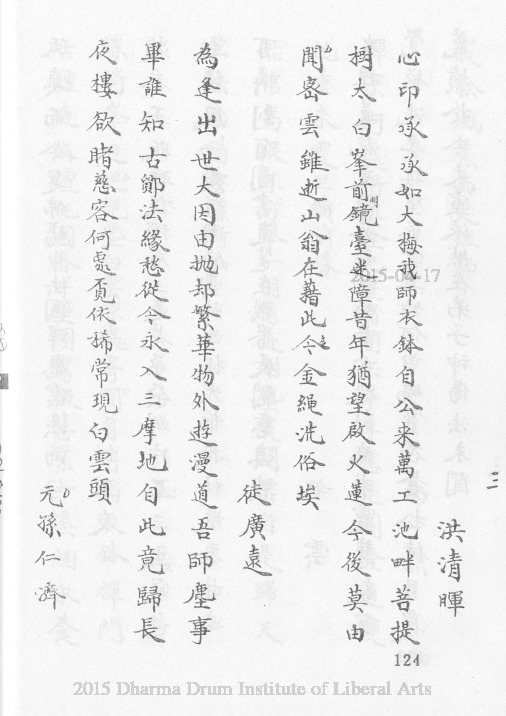 三
洪清暉
心印承承如大梅我師衣鉢自公来萬工池畔菩提
樹太白峯前明鏡臺迷障昔年猶望啟火蓮今後莫由
聞密雲雖逝山翁在藉此今金繩洗俗埃
徒廣遠
為逢出世大因由抛却繁華物外遊漫道吾師塵事
畢誰知古鄮法緣愁從今永入三摩地自此竟歸長
夜樓欲睹慈容何處覓依稀常現白雲頭
元孫仁濟
124
2015-04-17
2015 Dharma Drum Institute of Liberal Arts